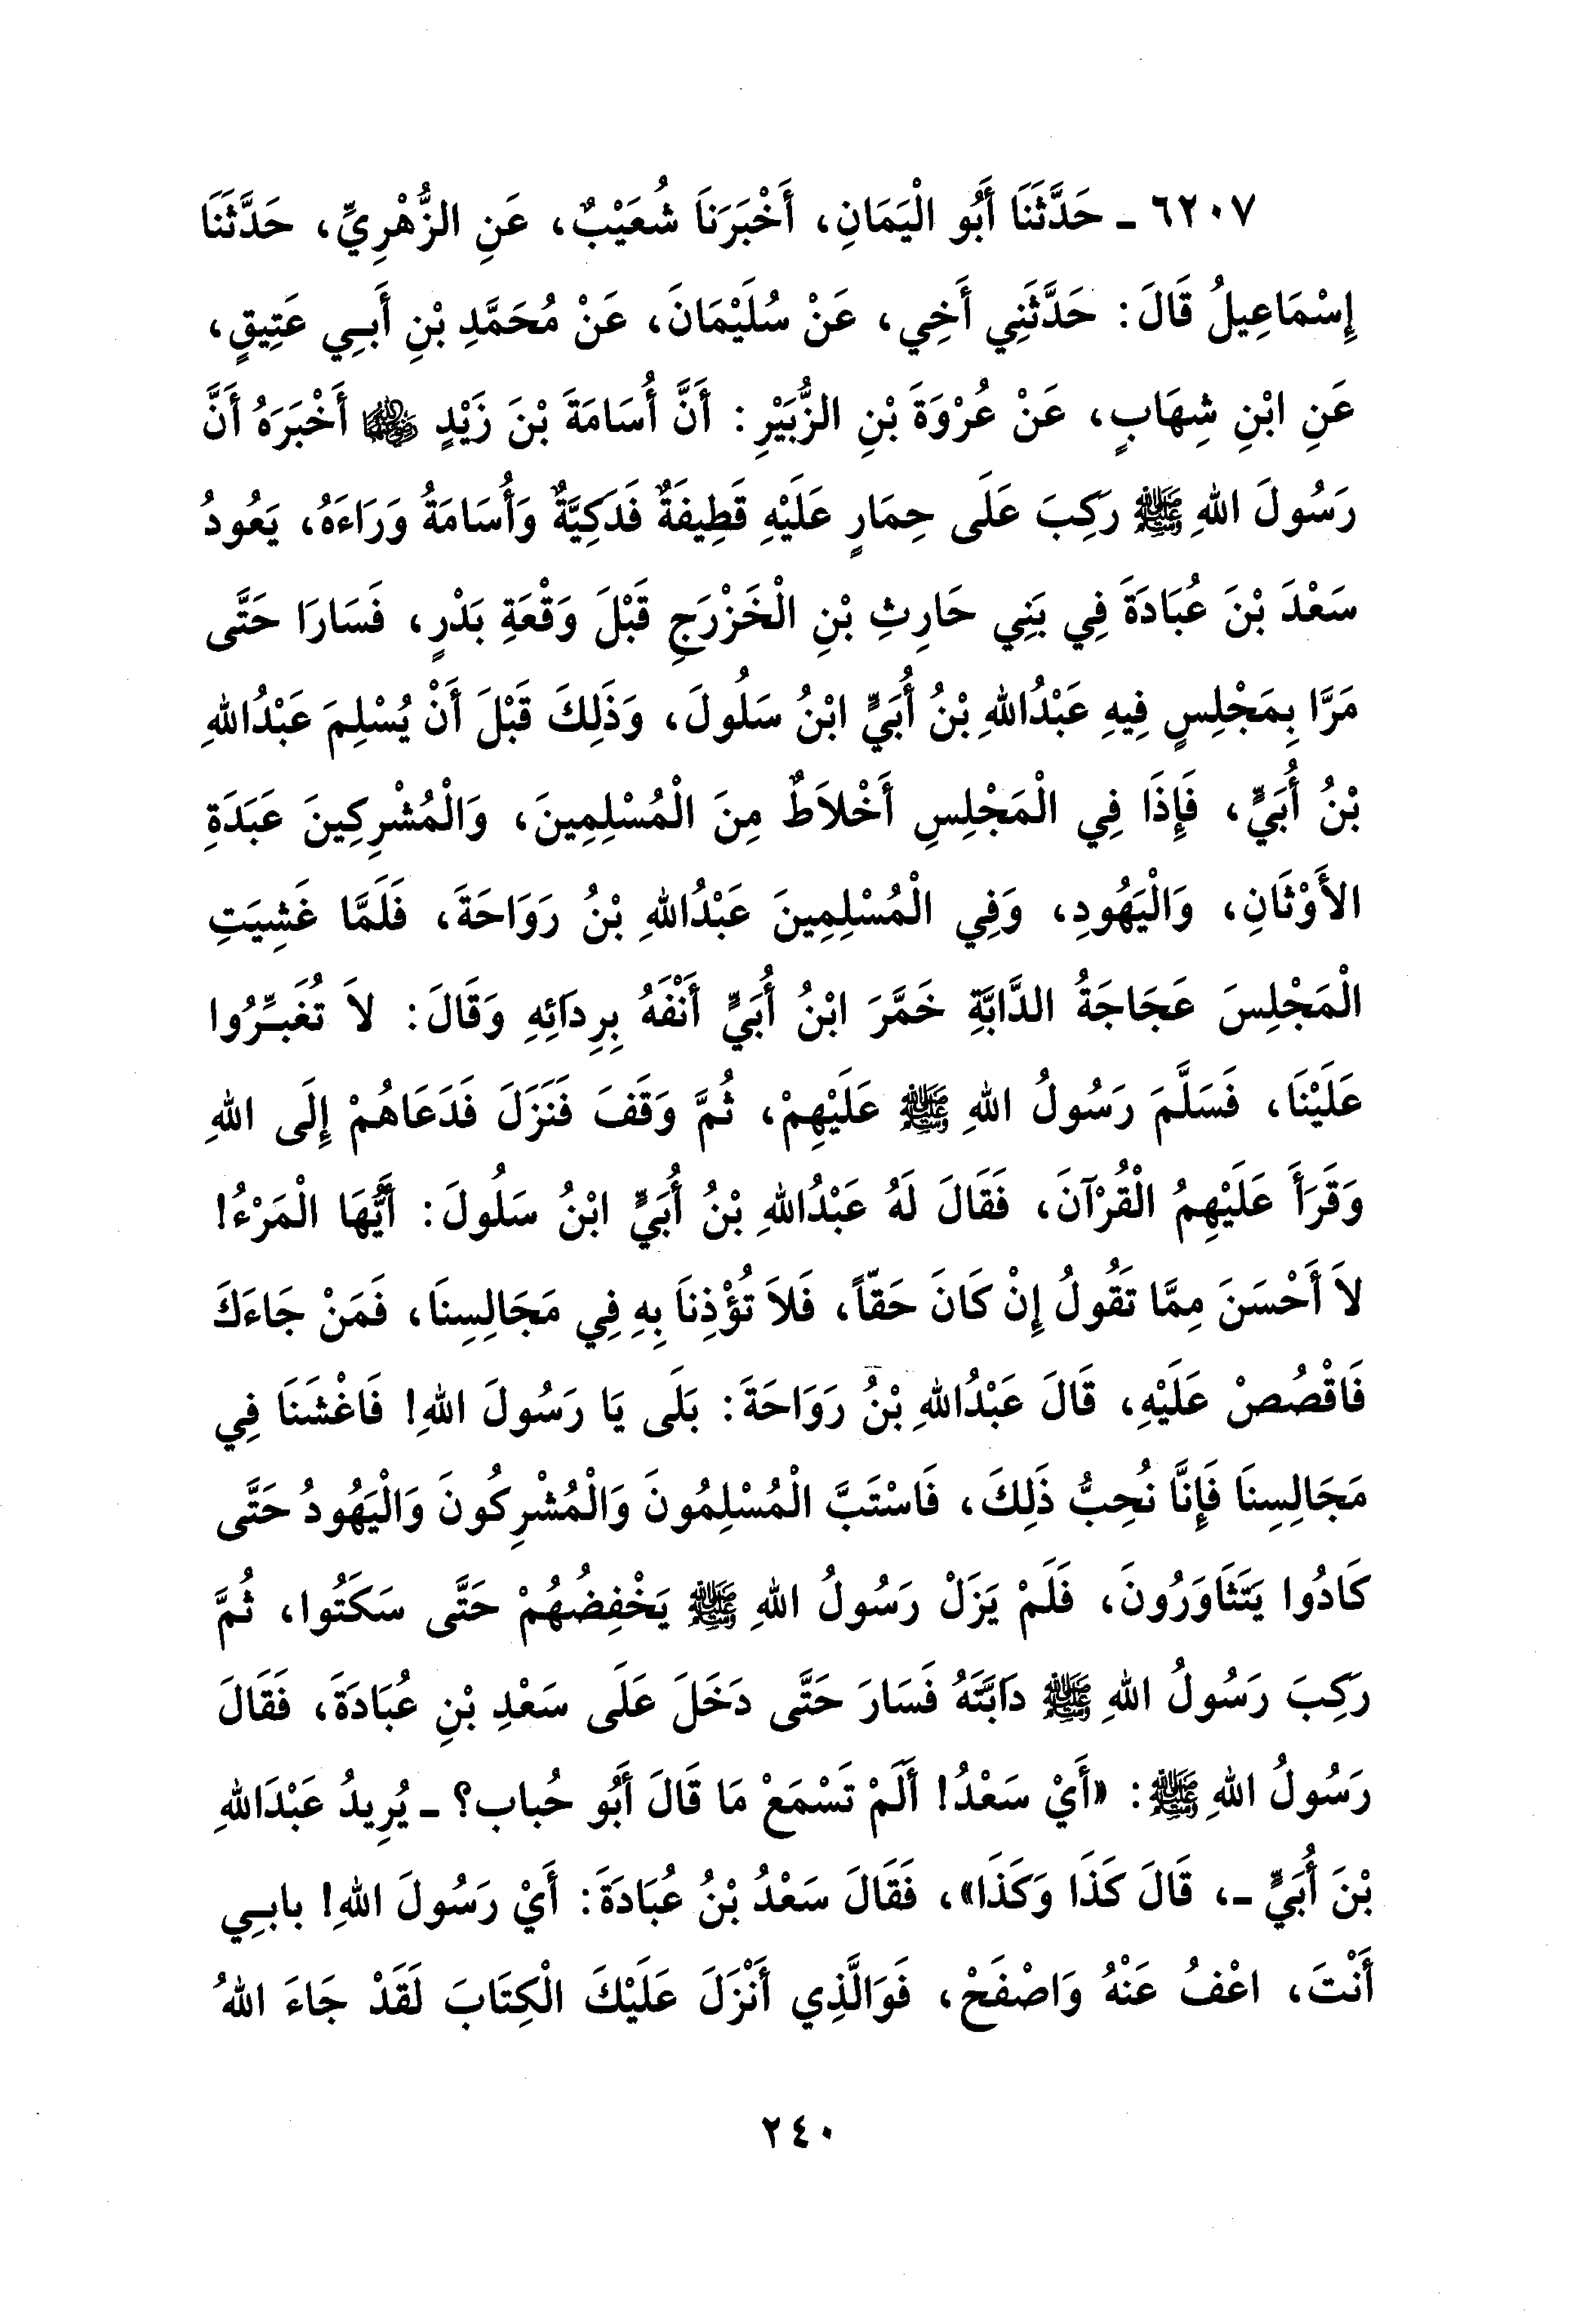 ٦٢٠٧ ـ حَدَّثَنَا أَبُو الْيَمَانِ، أَخْبَرَنَا شُعَيْبٌ، عَنِ الزُّهْرِيِّ، حَدَّثَنَا
إِسْمَاعِيلُ قَالَ: حَدَّثَنِي أَخِي، عَنْ سُلَيْمَانَ، عَنْ مُحَمَّدِ بْنِ أَبِي عَتِيقٍ،
عَنِ ابْنِ شِهَابٍ، عَنْ عُرْوَةَ بْنِ الزُّبَيْرِ: أَنَّ أُسَامَةَ بْنَ زَيْدٍ رضي الله عنهما أَخْبَرَهُ أَنَّ
رَسُولَ اللهِ ﷺ رَكِبَ عَلَى حِمَارٍ عَلَيْهِ قَطِيفَةٌ فَدَكِيَّةٌ وَأُسَامَةُ وَرَاءَهُ، يَعُودُ
سَعْدَ بْنَ عُبَادَةَ فِي بَنِي حَارِثِ بْنِ الْخَزْرَجِ قَبْلَ وَقْعَةِ بَدْرٍ، فَسَارَا حَتَّى
مَرَّا بِمَجْلِسٍ فِيهِ عَبْدُاللهِ بْنُ أُبَيٍّ ابْنُ سَلُولَ، وَذَلِكَ قَبْلَ أَنْ يُسْلِمَ عَبْدُاللهِ
بْنُ أُبَيٍّ، فَإِذَا فِي الْمَجْلِسِ أَخْلاَطٌ مِنَ الْمُسْلِمِينَ، وَالْمُشْرِكِينَ عَبَدَةِ
الأَوْثَانِ، وَالْيَهُودِ، وَفِي الْمُسْلِمِينَ عَبْدُاللهِ بْنُ رَوَاحَةَ، فَلَمَّا غَشِيَتِ
الْمَجْلِسَ عَجَاجَةُ الدَّابَّةِ خَمَّرَ ابْنُ أُبَيٍّ أَنْفَهُ بِرِدَائِهِ وَقَالَ: لاَ تُغَبِّرُوا
عَلَيْنَا، فَسَلَّمَ رَسُولُ اللهِ ﷺ عَلَيْهِمْ، ثُمَّ وَقَفَ فَنَزَلَ فَدَعَاهُمْ إِلَى اللهِ
وَقَرَأَ عَلَيْهِمُ الْقُرْآنَ، فَقَالَ لَهُ عَبْدُاللهِ بْنُ أُبَيٍّ ابْنُ سَلُولَ: أَيُّهَا الْمَرْءُ!
لاَ أَحْسَنَ مِمَّا تَقُولُ إِنْ كَانَ حَقّاً، فَلاَ تُؤْذِنَا بِهِ فِي مَجَالِسِنَا، فَمَنْ جَاءَكَ
فَاقْصُصْ عَلَيْهِ، قَالَ عَبْدُاللهِ بْنُ رَوَاحَةَ: بَلَى يَا رَسُولَ اللهِ! فَاغْشَنَا فِي
مَجَالِسِنَا فَإِنَّا نُحِبُّ ذَلِكَ، فَاسْتَبَّ الْمُسْلِمُونَ وَالْمُشْرِكُونَ وَالْيَهُودُ حَتَّى
كَادُوا يَتَثَاوَرُونَ، فَلَمْ يَزَلْ رَسُولُ اللهِ ﷺ يَخْفِضُهُمْ حَتَّى سَكَتُوا، ثُمَّ
رَكِبَ رَسُولُ اللهِ ﷺ دَابَّتَهُ فَسَارَ حَتَّى دَخَلَ عَلَى سَعْدِ بْنِ عُبَادَةَ، فَقَالَ
رَسُولُ اللهِ ﷺ: «أَيْ سَعْدُ! أَلَمْ تَسْمَعْ مَا قَالَ أَبُو حُباب؟ ـ يُرِيدُ عَبْدَاللهِ
بْنَ أُبَيٍّ ـ، قَالَ كَذَا وَكَذَا»، فَقَالَ سَعْدُ بْنُ عُبَادَةَ: أَيْ رَسُولَ اللهِ! بابِي
أَنْتَ، اعْفُ عَنْهُ وَاصْفَحْ، فَوَالَّذِي أَنْزَلَ عَلَيْكَ الْكِتَابَ لَقَدْ جَاءَ اللهُ
٢٤٠